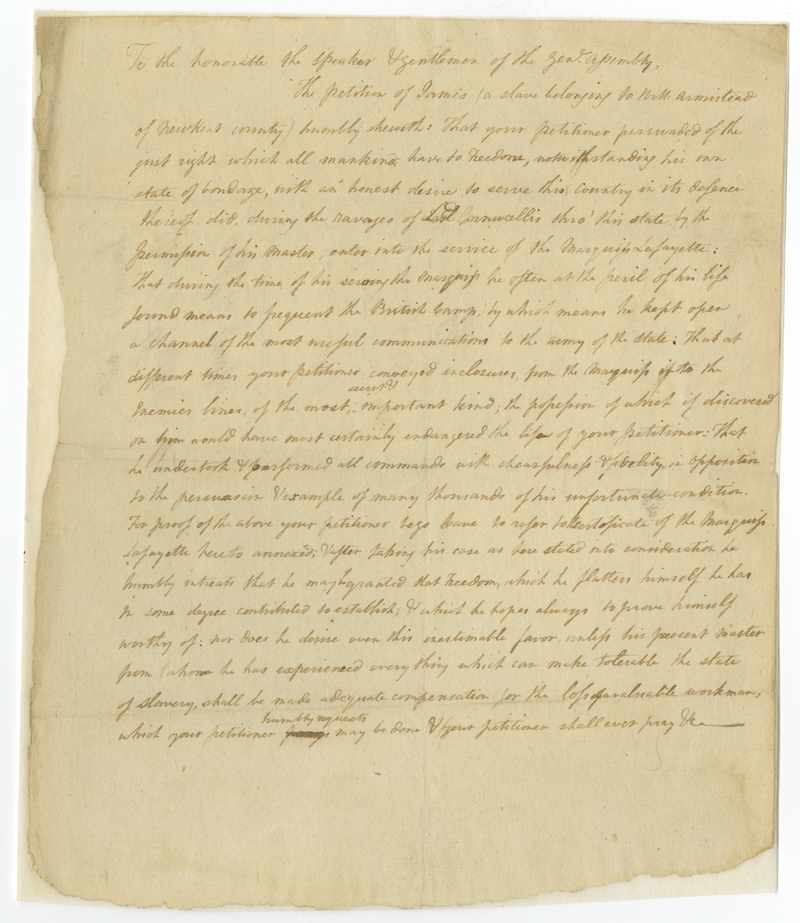 To the honorable the speaker & gentlemen of the genl. assembly,
The petition of James (a slave belonging to Will: Armistead
of New Kent county) humbly sheweth: That your petitioner perswaded of the
just right which all mankind have to Freedom, notwithstanding his own
state of bondage, with an honest desire to serve this country in its defence
thereof, did, during the ravages of Lord Cornwallis thro' this state, by the
permission of his Master, enter into the service of the Marquiss Lafayette:
That during the time of his serving the Marquiss he often at the peril of his life
found means to frequent the British Camp, by which means he kept open
a channel of the most useful communications to the army of the state: That at
different times your petitioner conveyed inclosures, from the Marquiss into the
secret &
Enemies lines, of the most important kind; the possession of which if discovered
on him would have most certainly endangered the life of your petitioner: That
he undertook & performed all commands with chearfulness & fidelity, in opposition
to the persuasion & example of many thousands of his unfortunate condition.
For proof of the above your petitioner begs leave to refer to the certificate of the Marquiss
Lafayette hereto annexed; & after taking his case as here stated into consideration he
humbly intreats that he may be granted that Freedom, which he flatters himself he has
in some degree contributed to establish; & which he hopes always to prove himself
worthy of: nor does he desire even this inestimable favor, unless his present master
from whom he has experienced everything which can make tolerable the state
of slavery, shall be made adequate compensation for the loss of a valuable workman,
humbly requests
which your petitioner may be done & your petitioner shall ever pray &c